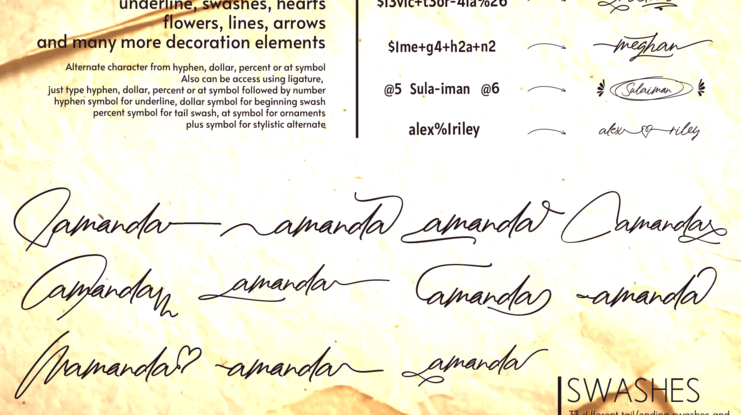 underline, swashes, hearts
flowers, lines, arrows
and many more decoration elements
Alternate character from hyphen, dollar, percent or at symbol
Also can be access using ligature,
just type hyphen, dollar, percent or at symbol followed by number
hyphen symbol for underline, dollar symbol for beginning swash
percent symbol for tail swash, at symbol for ornaments
plus symbol for stylistic alternate
$1me+g4+h2a+n2 meghan
@5 Sula-iman @6 Sulaiman
alex%1riley alex riley
amanda amanda amanda amanda
amanda amanda amanda amanda
amanda amanda amanda
SWASHES
33 different tail/ending swashes and